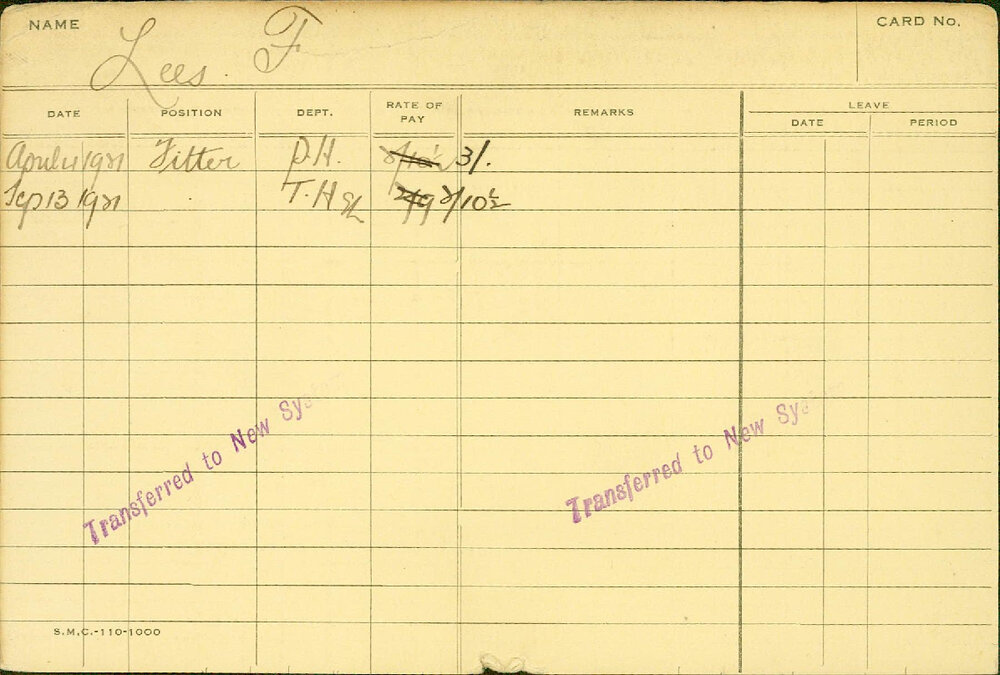 NAME Lees. F CARD No.
DATE POSITION DEPT. RATE OF PAY REMARKS LEAVE
DATE PERIOD
April 4 1921 Fitter P.H. 2/10½ 3/.
Sep 13 1921 T.H 2/9 2/10½
Transferred to New Sys
Transferred to New Sys
S.M.C.-110-1000